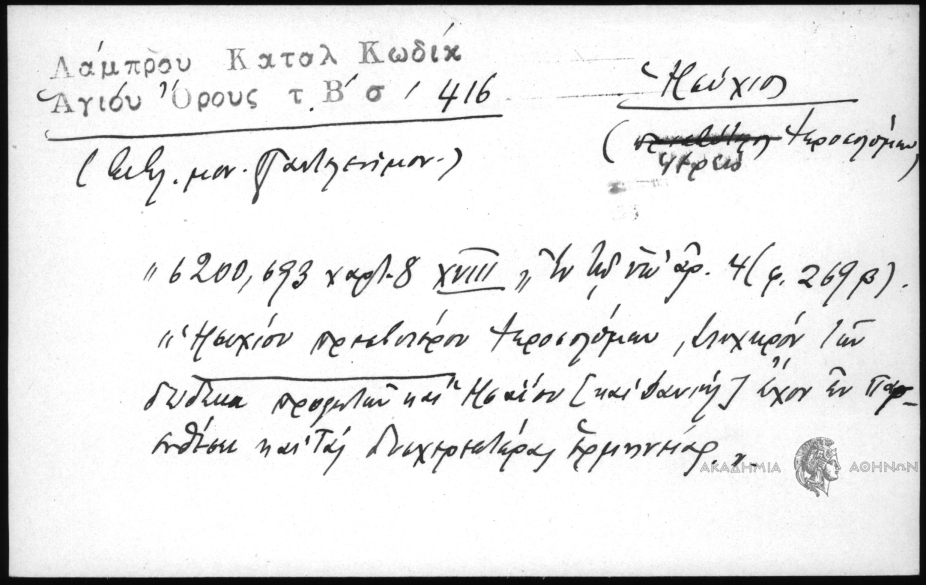 Λάμπρου Καταλ Κωδίκ
Ἁγιόυ Ὄρους τ. Β΄ σ / 416
(Βιβλ. μον. Παντελεήμον.)
Ἡσύχιος
(Ἱεροσολύμων)
"6200,693 χαρτ. 8 XVIII " Ἐν ᾧ ὑπ' ἀρ. 4 (φ. 269β).
"Ἡσυχίου πρεσβυτέρου Ἱεροσολύμων, στιχηρόν τῶν
δώδεκα προφητῶν καὶ Ἡσαΐου [καὶ Δανιήλ] ἔχον ἐν παρ-
ενθέσει καὶ τὰς δυσχερεστέρας ἑρμηνείας."
ΑΚΑΔΗΜΙΑ ΑΘΗΝΩΝ